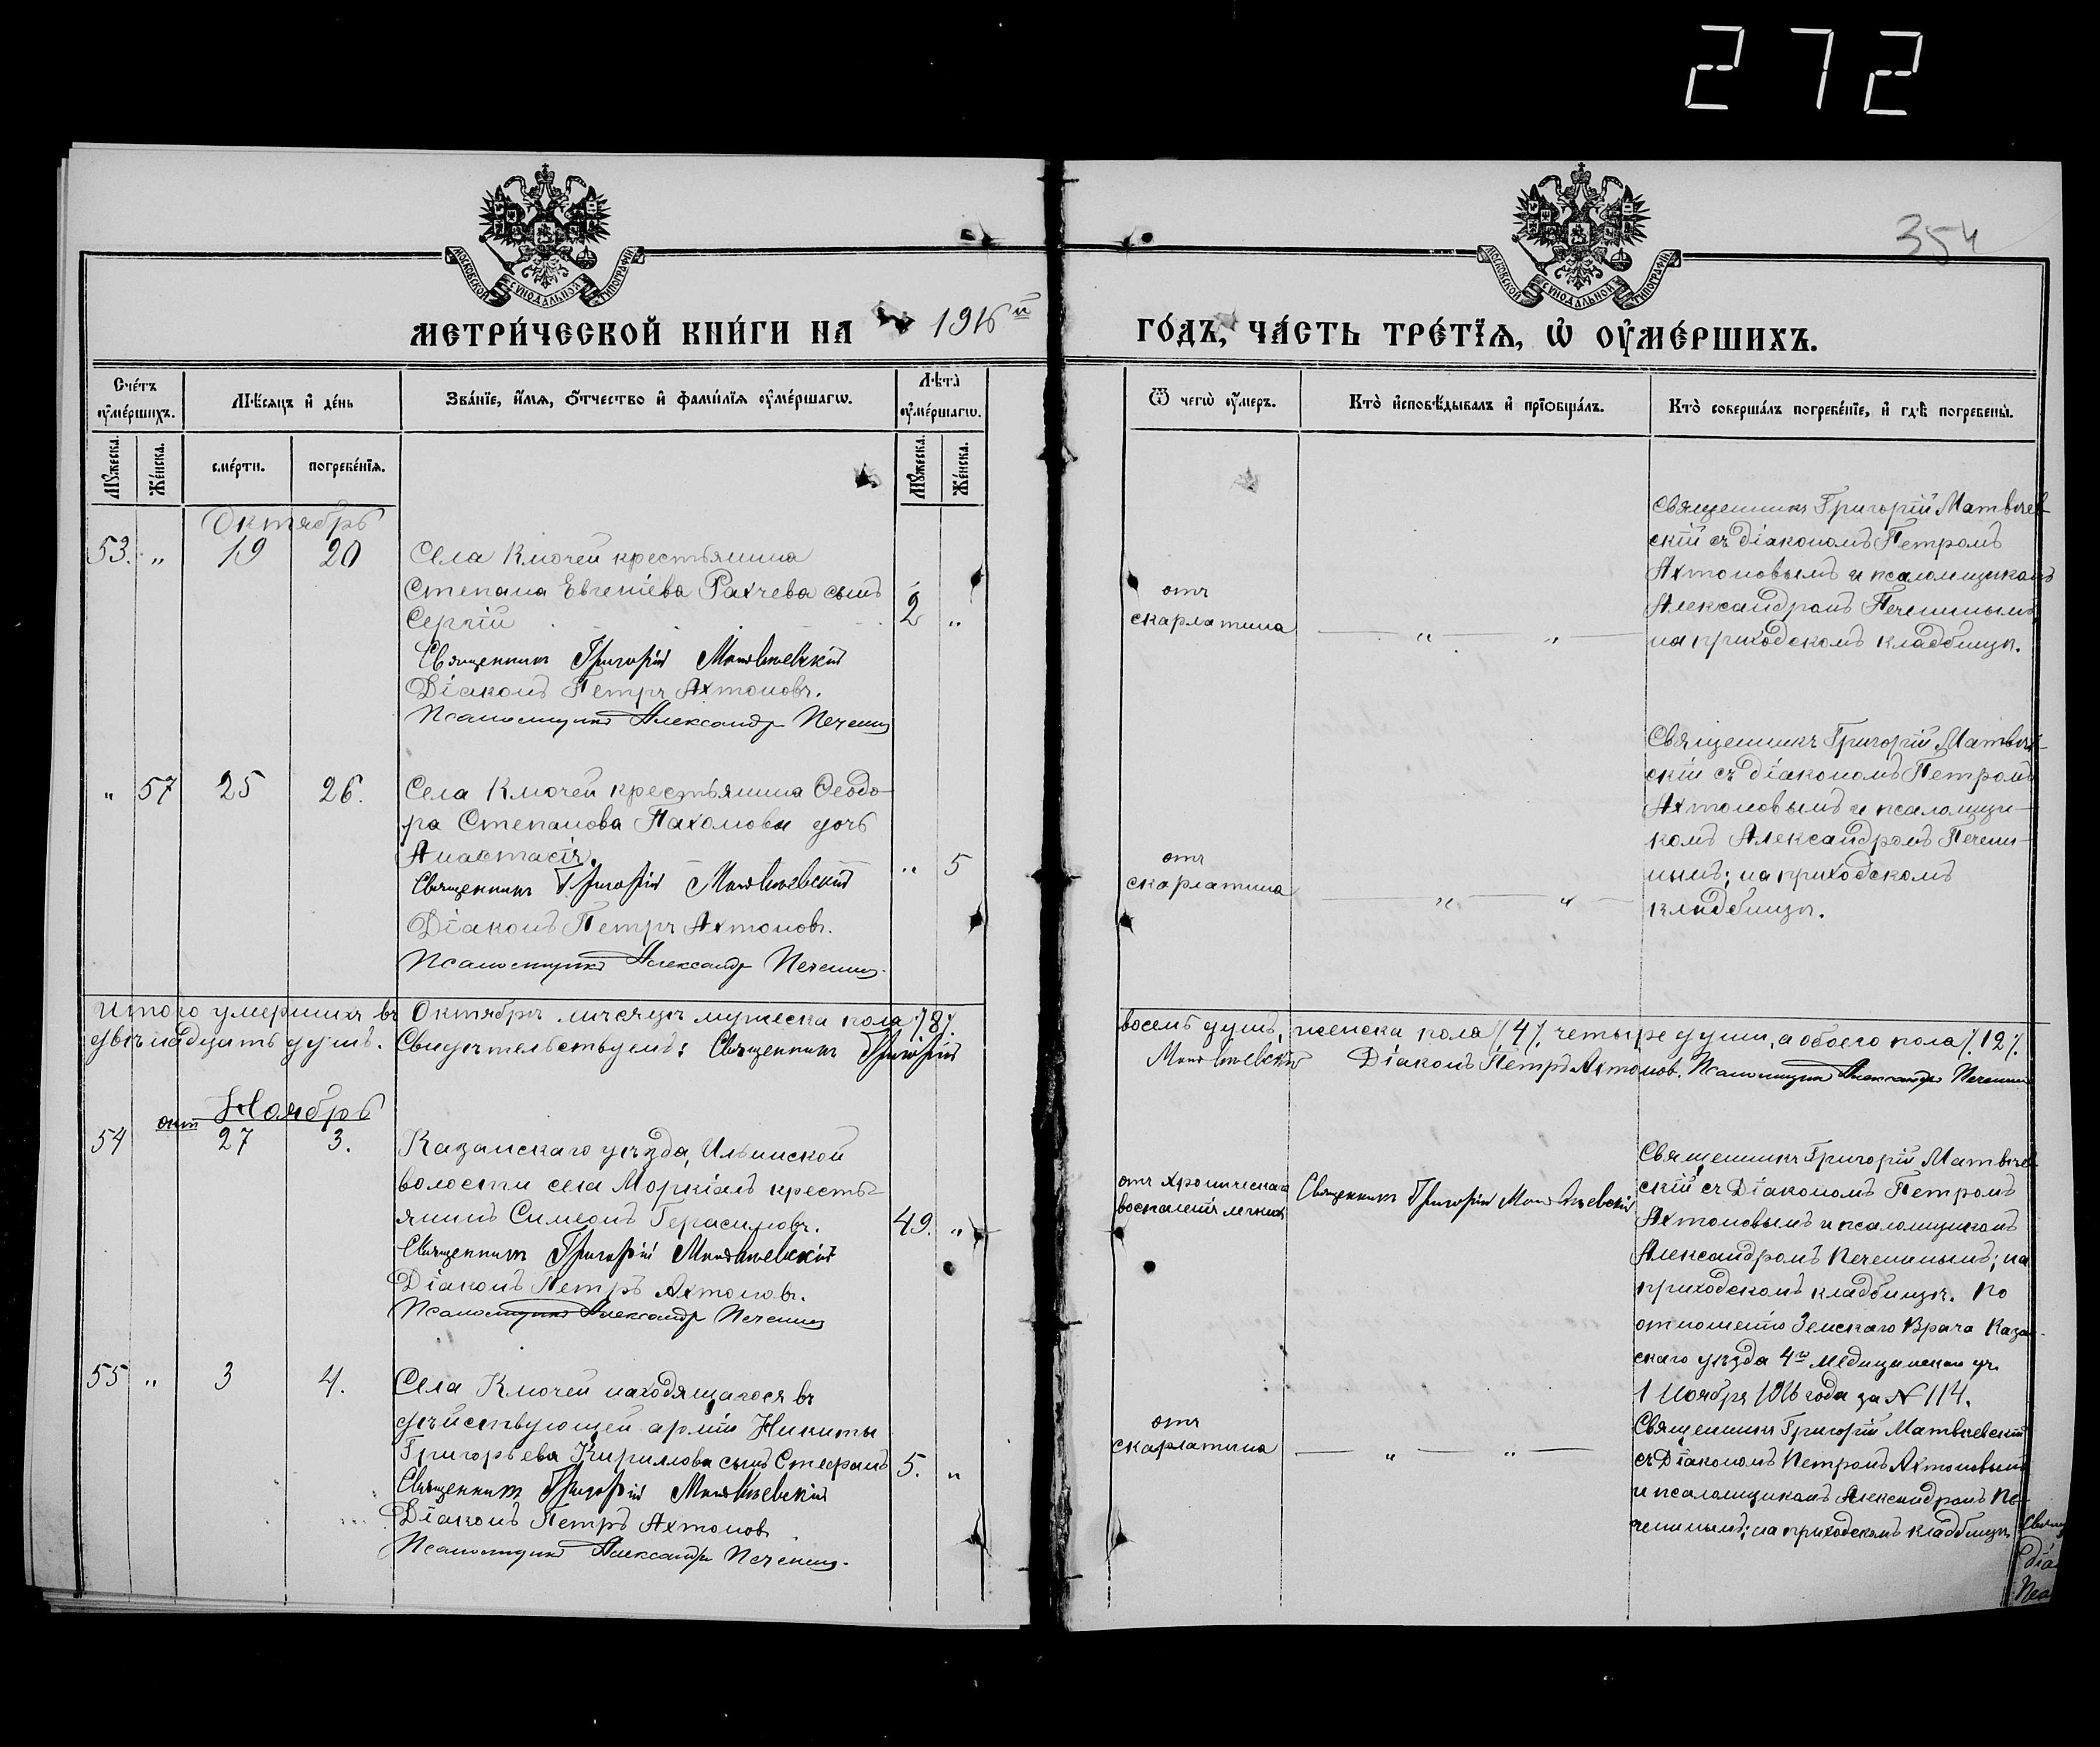 272
354
МОСКОВСКОЙ СѴНОДАЛЬНОЙ ТИПОГРАФІИ
МОСКОВСКОЙ СѴНОДАЛЬНОЙ ТИПОГРАФІИ
МЕТРИ́ЧЕСКОЙ КНИ́ГИ НА 1916й
ГО́ДЪ, ЧА́СТЬ ТРЕ́ТЇѦ, Ѡ҆ ОУ҆МЕ́РШИХЪ.
Сче́тъ оу҆ме́ршихъ.
Мѣ́сяцъ и҆ де́нь
Зва́нїе, и҆́мѧ, ѻ҆́тчество и҆ фами́лїѧ оу҆ме́ршагѡ.
Лѣ̀та оу҆ме́ршагѡ.
Ѿ чегѡ̀ оу҆́меръ.
Кто̀ и҆сповѣ́дывалъ и҆ прїѡбща́лъ.
Кто̀ соверша́лъ погребе́нїе, и҆ гдѣ̀ погребены̀.
Мꙋ́жеска. Же́нска.
сме́рти. погребе́нїѧ.
Мꙋ́жеска. Же́нска.
Октябрь
53. „ 19 20
Села Ключей крестьянина
Степана Евгеніева Рахчева сынъ
Сергій
2 „
Священникъ Григорій Матвѣевскій
Діаконъ Петръ Ахтоновъ.
Псаломщикъ Александръ Печенинъ
отъ
скарлатина
„ „
Священникъ Григорій Матвѣев-
скій съ діакономъ Петромъ
Ахтоновымъ и псаломщикомъ
Александромъ Печенинымъ,
на приходскомъ кладбищѣ.
„ 57 25 26.
Села Ключей крестьянина Ѳеодо-
ра Степанова Пахомова дочь
Анастасія.
„ 5
Священникъ Григорій Матвѣевскій
Діаконъ Петръ Ахтоновъ.
Псаломщикъ Александръ Печенинъ.
отъ
скарлатина
„ „
Священникъ Григорій Матвѣев-
скій съ діакономъ Петромъ
Ахтоновымъ и псаломщи-
комъ Александромъ Печени-
нымъ; на приходскомъ
кладбищѣ.
Итого умершихъ въ Октябрѣ мѣсяцѣ мужеска пола /.8/. восемь душъ, женска пола /.4/. четыре души, а обоего пола /.12/.
двѣнадцать душъ. Свидѣтельствуемъ: Священникъ Григорій Матвѣевскій Діаконъ Петръ Ахтонов. Псаломщикъ Александръ Печенинъ
Ноябрь
окт
54 27 3.
Казанскаго уѣзда, Ильинской
волости села Моркіалъ кресть-
янинъ Симеонъ Герасимовъ.
49. „
Священникъ Григорій Матвѣевскій
Діаконъ Петръ Ахтоновъ.
Псаломщикъ Александръ Печенинъ
отъ хроническаго
воспаленія легкихъ
Священникъ Григорій Матвѣевскій
Священникъ Григорій Матвѣев-
скій съ Діакономъ Петромъ
Ахтоновымъ и псаломщикомъ
Александромъ Печенинымъ; на
приходскомъ кладбищѣ. По
отношенію Земскаго Врача Казан-
скаго уѣзда 4го медицинскаго уч.
1 Ноября 1916 года за № 114.
55 „ 3 4.
Села Ключей находящагося въ
дѣйствующей арміи Никиты
Григорьева Кириллова сынъ Стефанъ
5. „
Священникъ Григорій Матвѣевскій
Діаконъ Петръ Ахтонов
Псаломщикъ Александръ Печенинъ.
отъ
скарлатина
„ „
Священникъ Григорій Матвѣевскій
съ Діакономъ Петромъ Ахтоновымъ
и псаломщикомъ Александромъ Пе-
ченинымъ; на приходскомъ кладбищѣ